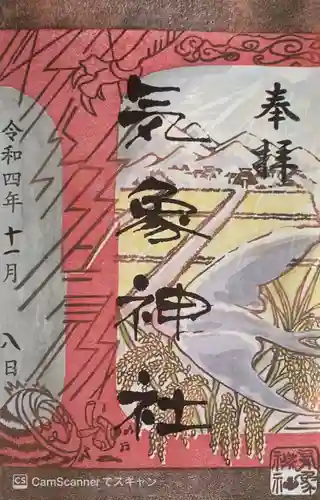 奉拝
気象神社
令和四年十一月八日
気象神社
CS CamScannerでスキャン